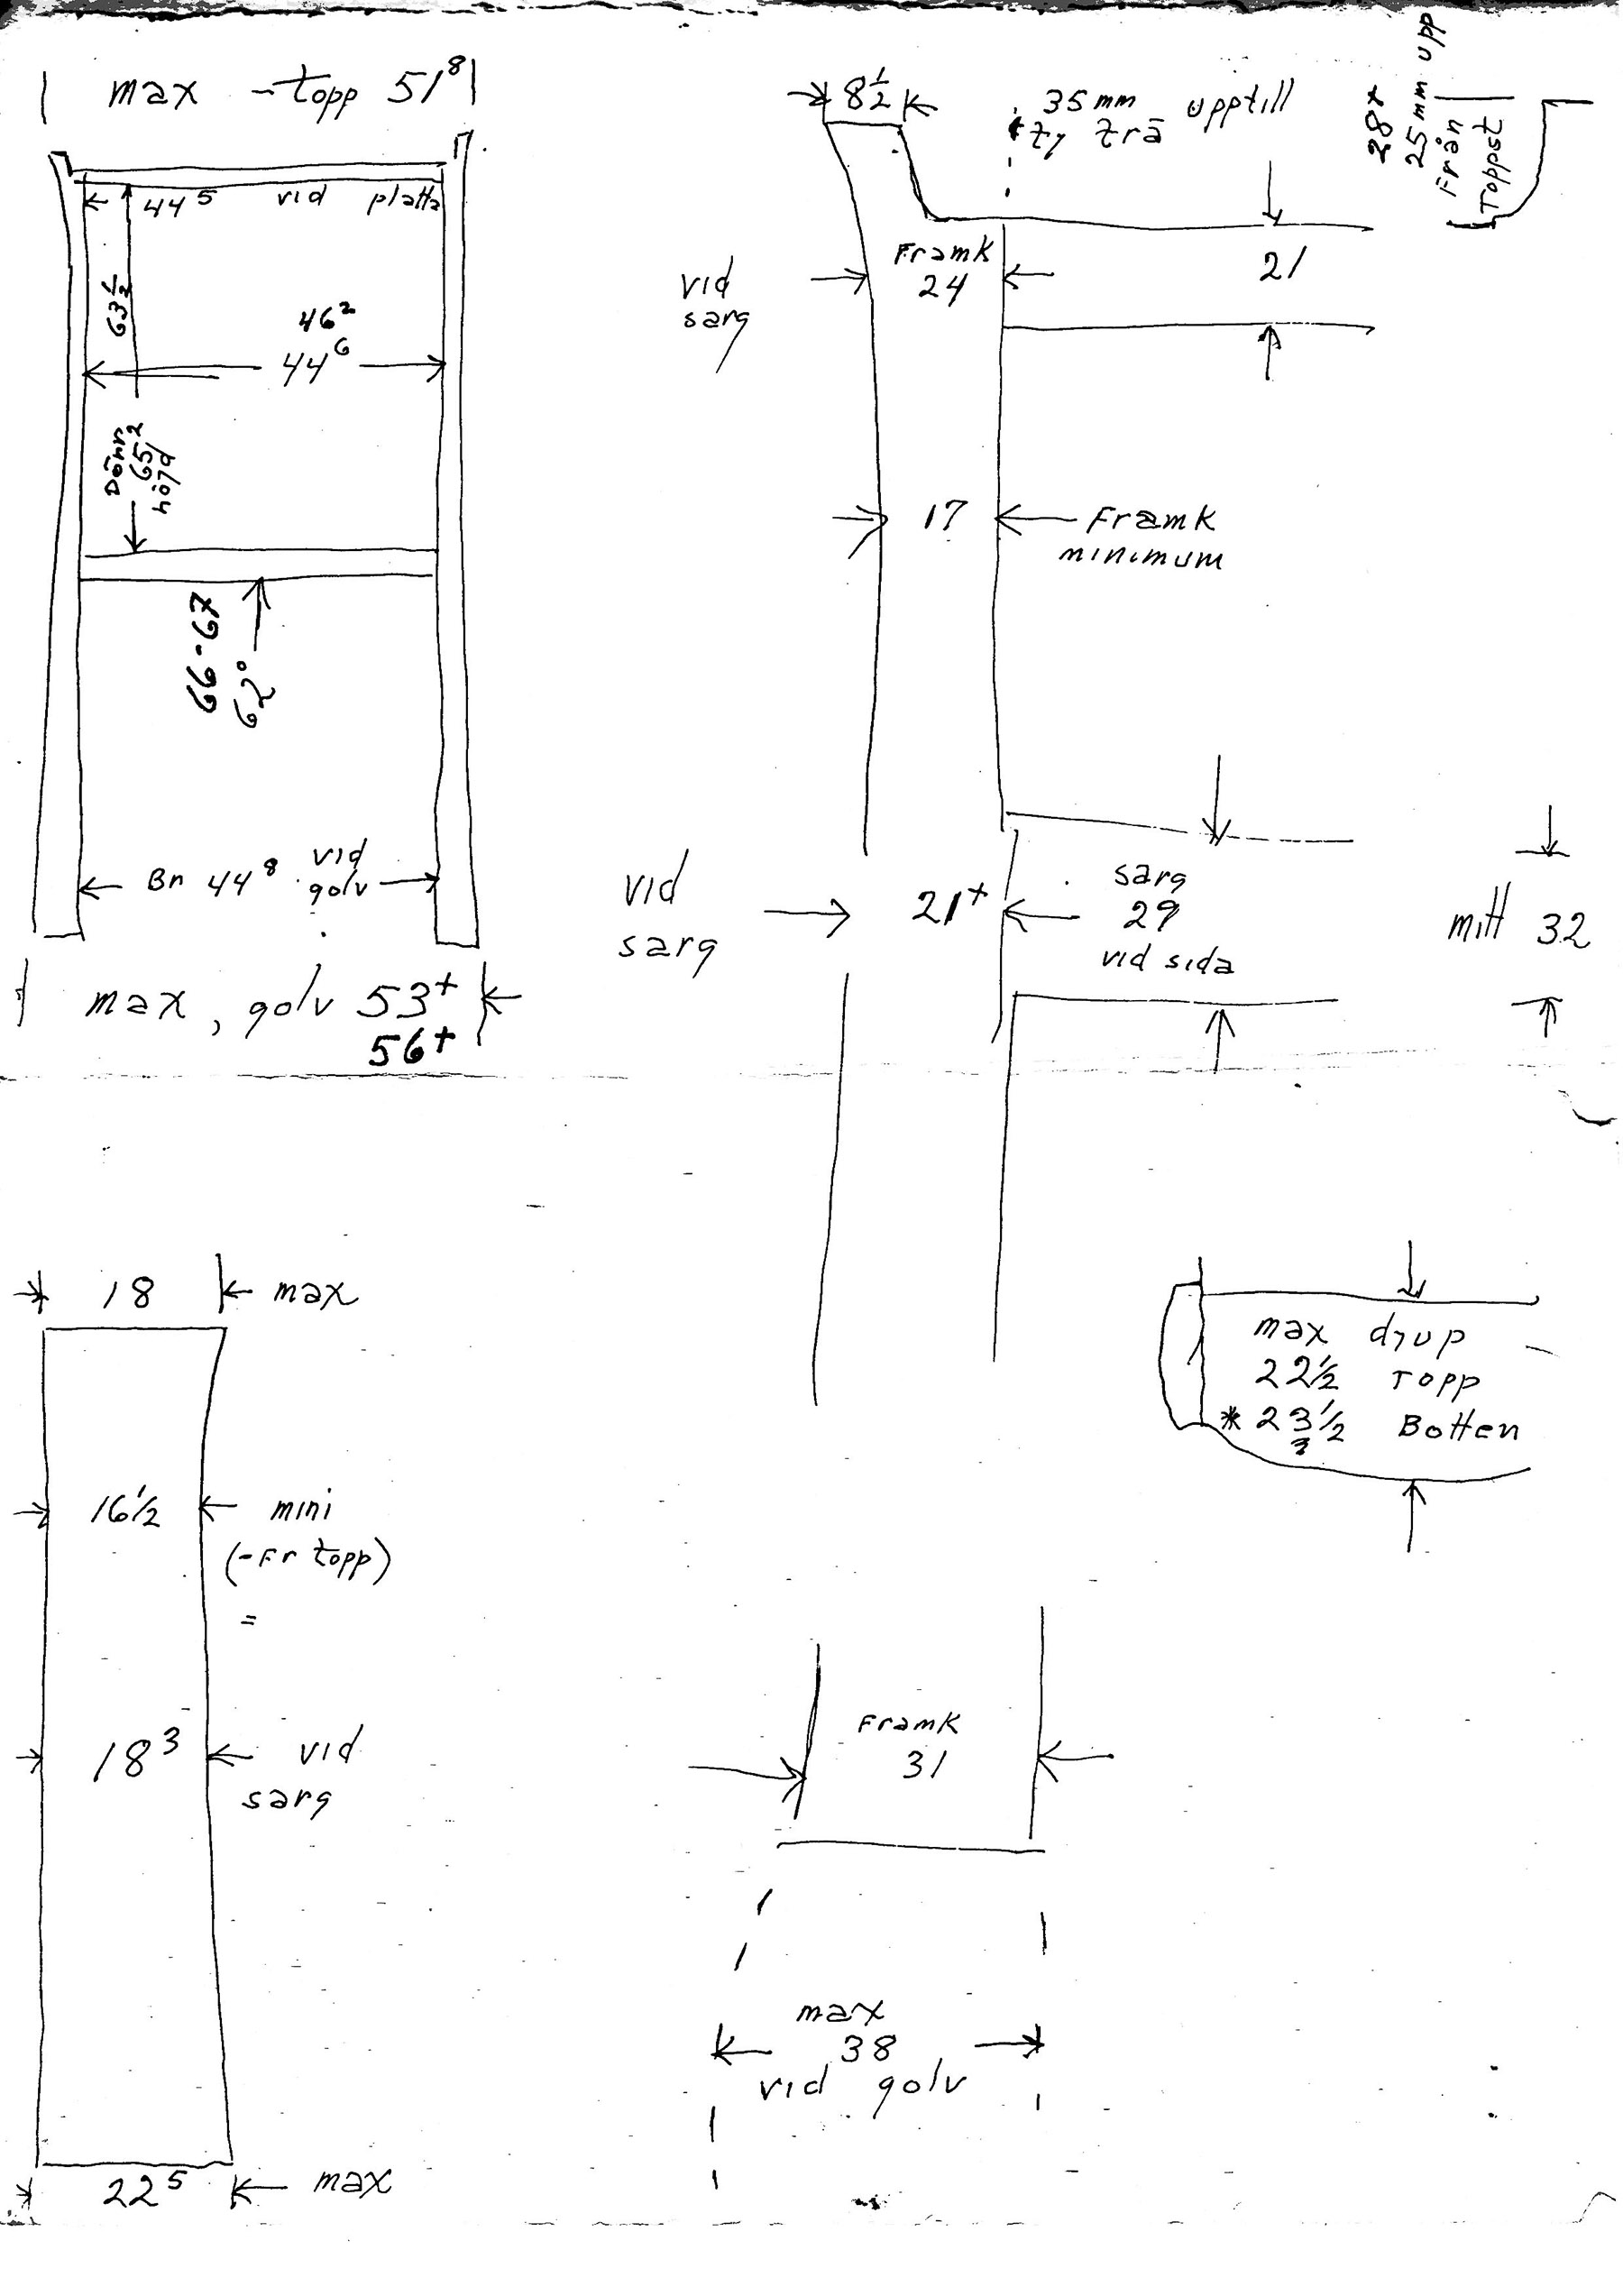 max - topp 51⁸
44⁵ vid platta
63½
46²
44⁶
65²
höjd
66-67
62°
Br 44⁸ vid
golv
max, golv 53+
56+
8½
35mm upptill
28+
25mm upp
Från
Toppst
vid
sarg
Framk
24
21
17
Framk
minimum
vid
sarg
21+
sarg
29
vid sida
mitt 32
18 max
16½ mini
(-Fr topp)
=
18³ vid
sarg
22⁵ max
max djup
22½ Topp
*23½ Botten
3
Framk
31
max
38
vid golv